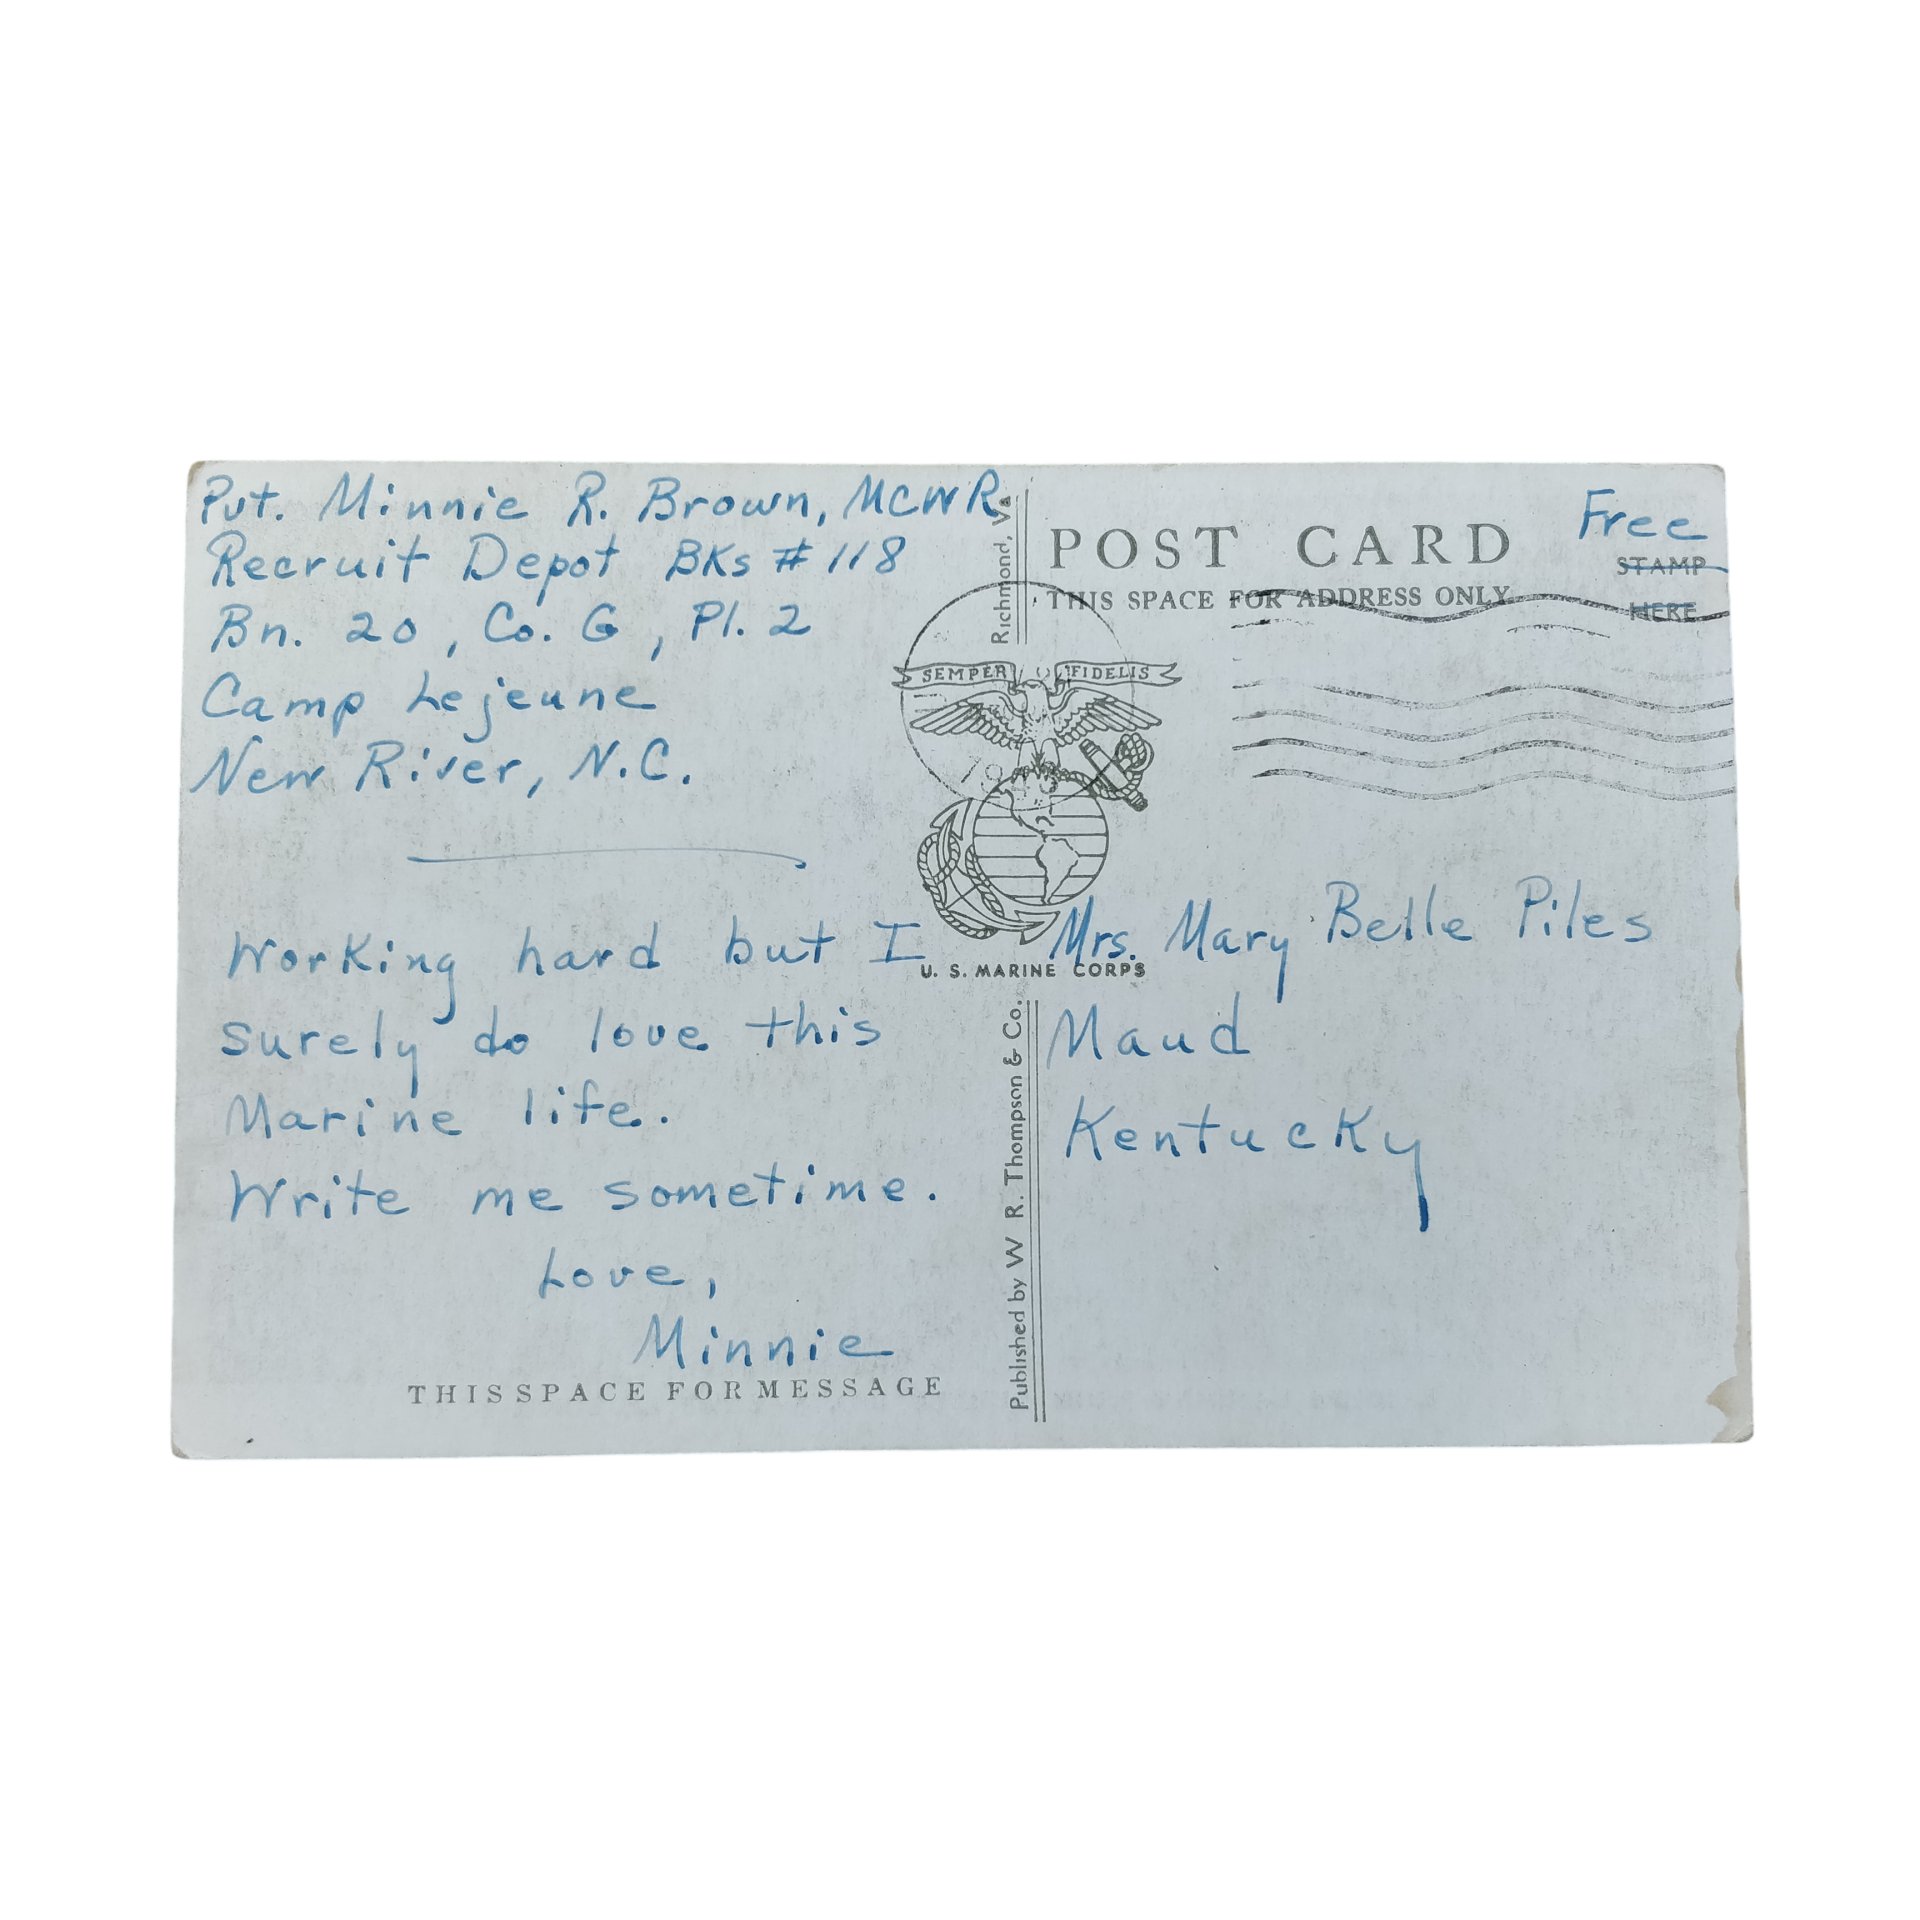 Pvt. Minnie R. Brown, MCWR
Recruit Depot BKs # 118
Bn. 20, Co. G, Pl. 2
Camp Lejeune
New River, N.C.
Working hard but I
surely do love this
Marine life.
Write me sometime.
Love,
Minnie
THIS SPACE FOR MESSAGE
Published by W. R. Thompson & Co. Richmond, Va
SEMPER FIDELIS
U. S. MARINE CORPS
POST CARD
THIS SPACE FOR ADDRESS ONLY
Free
STAMP
HERE
Mrs. Mary Belle Piles
Maud
Kentucky